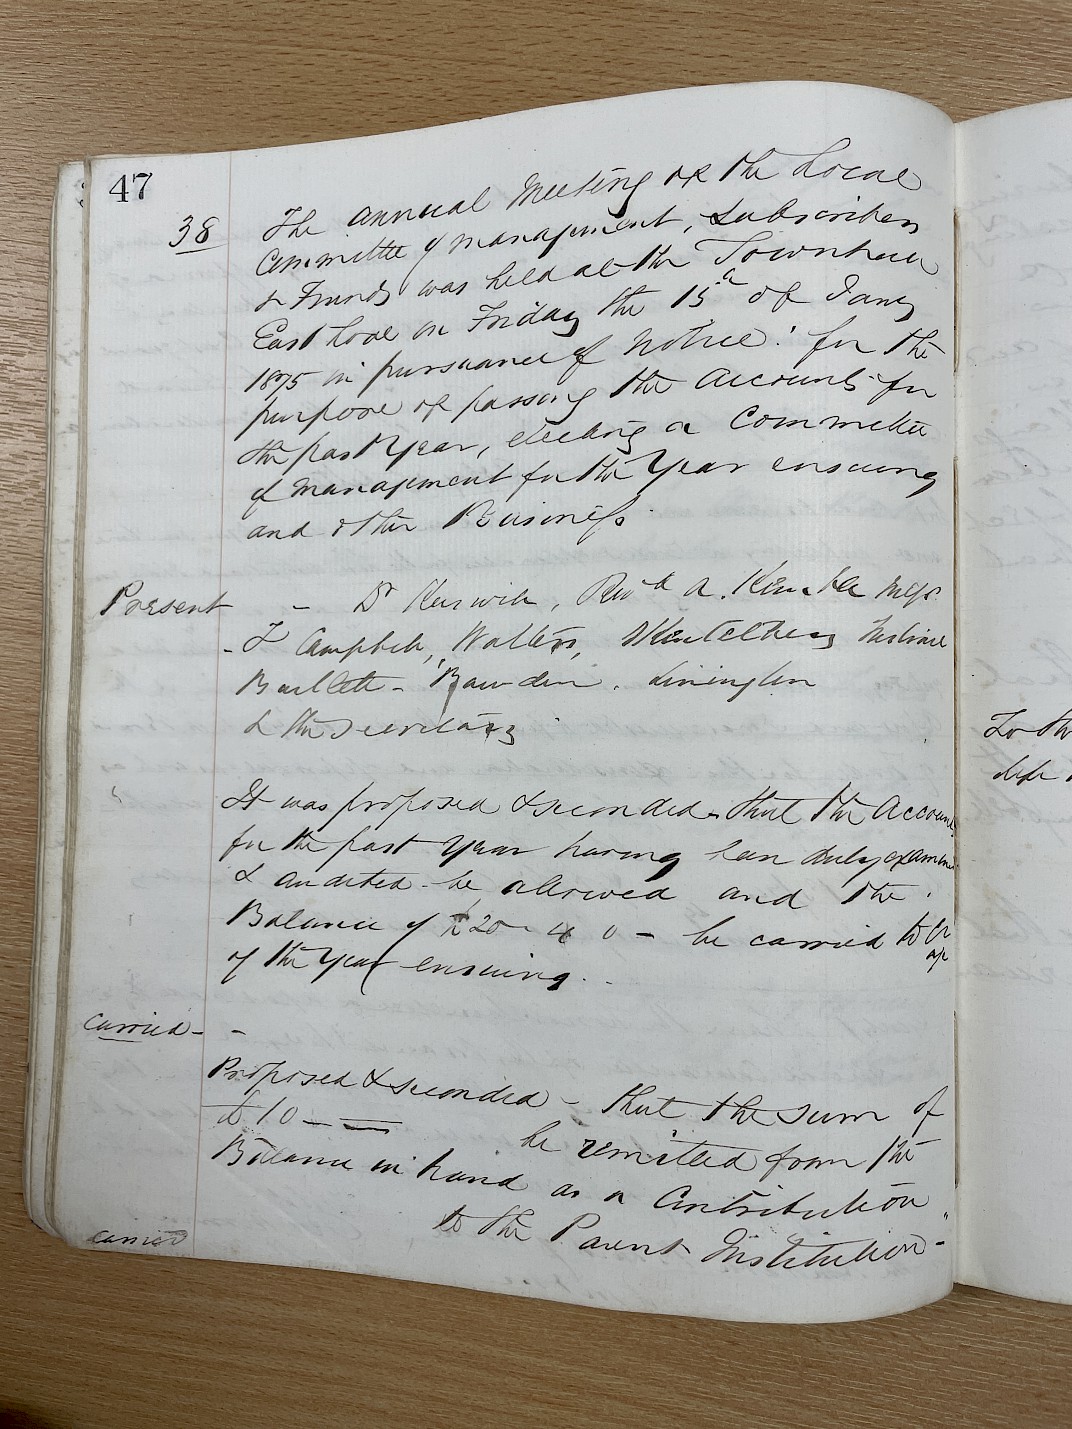 47
38 The annual Meeting of the Local
Committee of Management, Subscribers
& Friends was held at the Townhall
East Looe on Friday the 15th of Jany
1875 in pursuance of Notice: for the
purpose of passing the Accounts for
the past Year, electing a Committee
of Management for the Year ensuing
and other Business.
Present - Dr Kerswill, Revd A. Messrs
Campbell, Walters,
Bartlett - Bawden.
& the Secretary
It was proposed & seconded - that the Accounts
for the past Year having been duly examined
& audited - be allowed and the
Balance of £20 - 4 0 - be carried to Cr
of the Year ensuing.
Carried -
Proposed & seconded - that the sum of
£10 - - be remitted from the
Balance in hand as a Contribution
to the Parent Institution -
Carried
To th